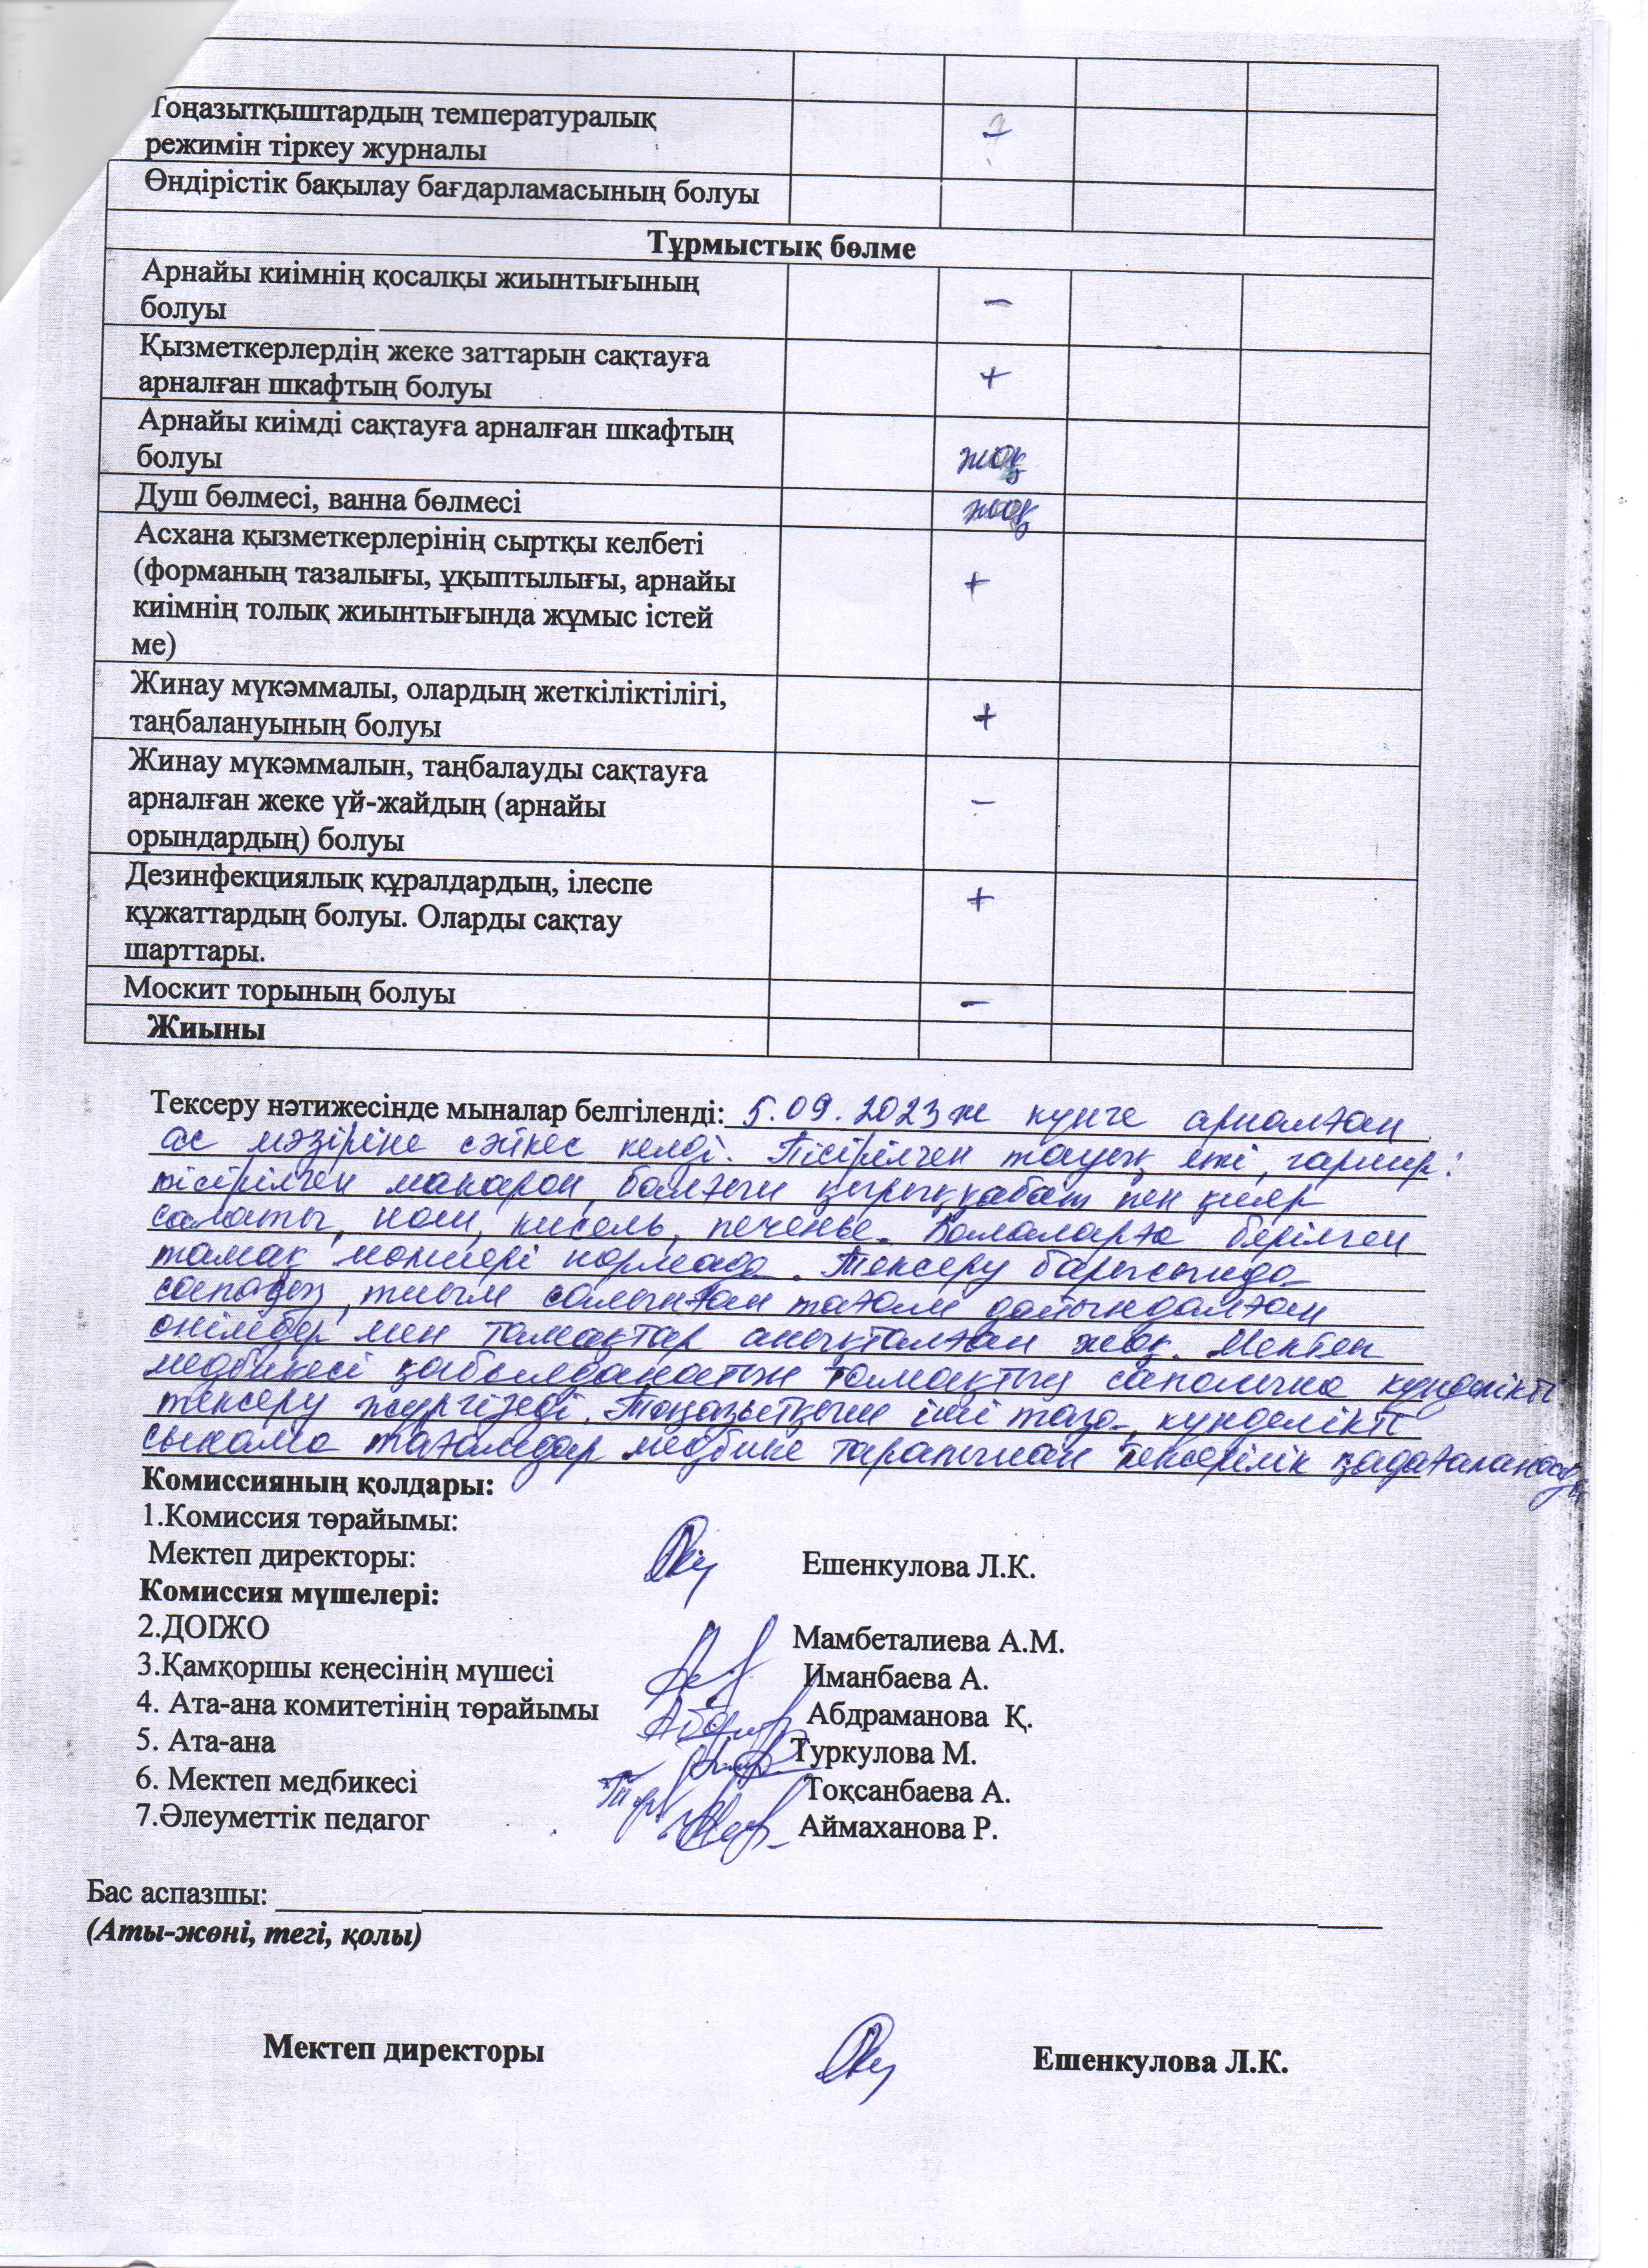 Тоңазытқыштардың температуралық
режимін тіркеу журналы
Өндірістік бақылау бағдарламасының болуы
Тұрмыстық бөлме
Арнайы киімнің қосалқы жиынтығының
болуы –
Қызметкерлердің жеке заттарын сақтауға
арналған шкафтың болуы +
Арнайы киімді сақтауға арналған шкафтың
болуы жоқ
Душ бөлмесі, ванна бөлмесі жоқ
Асхана қызметкерлерінің сыртқы келбеті
(форманың тазалығы, ұқыптылығы, арнайы +
киімнің толық жиынтығында жұмыс істей
ме)
Жинау мүкәммалы, олардың жеткіліктілігі,
таңбалануының болуы +
Жинау мүкәммалын, таңбалауды сақтауға
арналған жеке үй-жайдың (арнайы –
орындардың) болуы
Дезинфекциялық құралдардың, ілеспе +
құжаттардың болуы. Оларды сақтау
шарттары.
Москит торының болуы –
Жиыны
Тексеру нәтижесінде мыналар белгіленді: 5.09.2023ж күнге арналған
ас мәзіріне сәйкес келді. Пісірілген тауық еті, гарнир:
пісірілген макарон, балғын қырыққабат пен қияр
салаты, нан, кисель, печенье. Балаларға берілген
тамақ мөлшері нормада. Тексеру барысында
сапасыз, тиым салынған тағам дайындалған
өнімдер мен тамақтар анықталған жоқ. Мектеп
медбикесі қабылданатын тамақтың сапасына күнделікті
тексеру жүргізеді. Тоңазытқыш іші таза, күнделікті
сынама тағамдар медбике тарапынан тексеріліп қадағаланады
Комиссияның қолдары:
1.Комиссия төрайымы:
Мектеп директоры: Ешенкулова Л.К.
Комиссия мүшелері:
2.ДОІЖО Мамбеталиева А.М.
3.Қамқоршы кеңесінің мүшесі Иманбаева А.
4. Ата-ана комитетінің төрайымы Абдраманова Қ.
5. Ата-ана Туркулова М.
6. Мектеп медбикесі Тоқсанбаева А.
7.Әлеуметтік педагог Аймаханова Р.
Бас аспазшы:
(Аты-жөні, тегі, қолы)
Мектеп директоры Ешенкулова Л.К.